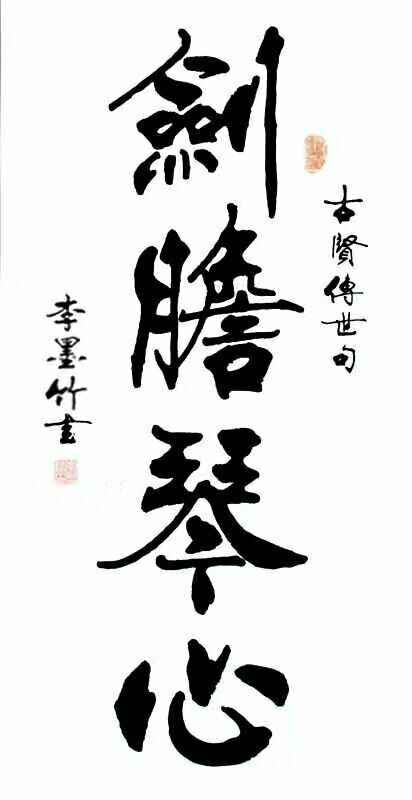 古賢傳世句
劍膽琴心
李墨竹書